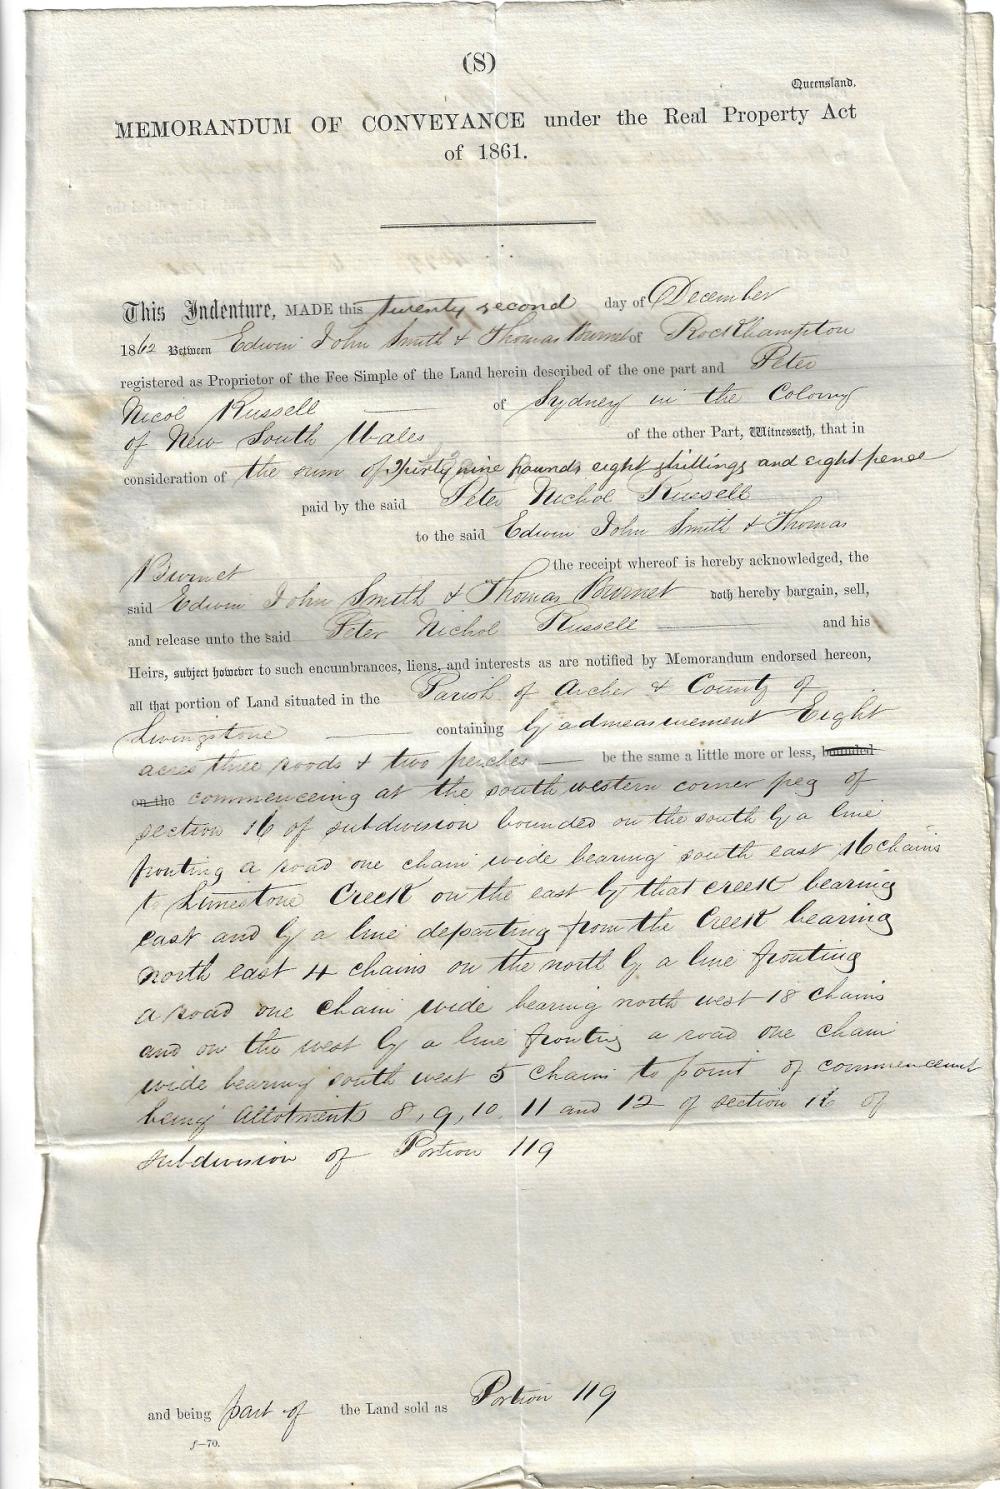 (S)
Queensland.
MEMORANDUM OF CONVEYANCE under the Real Property Act
of 1861.
This Indenture, MADE this twenty second day of December
1862 Between Edwin John Smith & Thomas Burnet of Rockhampton
registered as Proprietor of the Fee Simple of the Land herein described of the one part and Peter
Nicol Russell of Sydney in the Colony
of New South Wales of the other Part, Witnesseth, that in
consideration of the sum of Thirty nine pounds eight shillings and eight pence
paid by the said Peter Nichol Russell
to the said Edwin John Smith & Thomas
Burnet the receipt whereof is hereby acknowledged, the
said Edwin John Smith & Thomas Burnet doth hereby bargain, sell,
and release unto the said Peter Nichol Russell and his
Heirs, subject however to such encumbrances, liens, and interests as are notified by Memorandum endorsed hereon,
all that portion of Land situated in the Parish of Archer & County of
Livingstone containing by admeasurement Eight
acres three roods & two perches — be the same a little more or less, bounded
on the commenceing at the south western corner peg of
section 16 of subdivision bounded on the south by a line
fronting a road one chain wide bearing south east 16 chains
to Limestone Creek on the east by that creek bearing
east and by a line departing from the Creek bearing
north east 4 chains on the north by a line fronting
a road one chain wide bearing north west 18 chains
and on the west by a line fronting a road one chain
wide bearing south west 5 chains to point of commencement
being Allotments 8, 9, 10, 11 and 12 of section 16 of
subdivision of Portion 119
and being part of the Land sold as Portion 119
f—70.